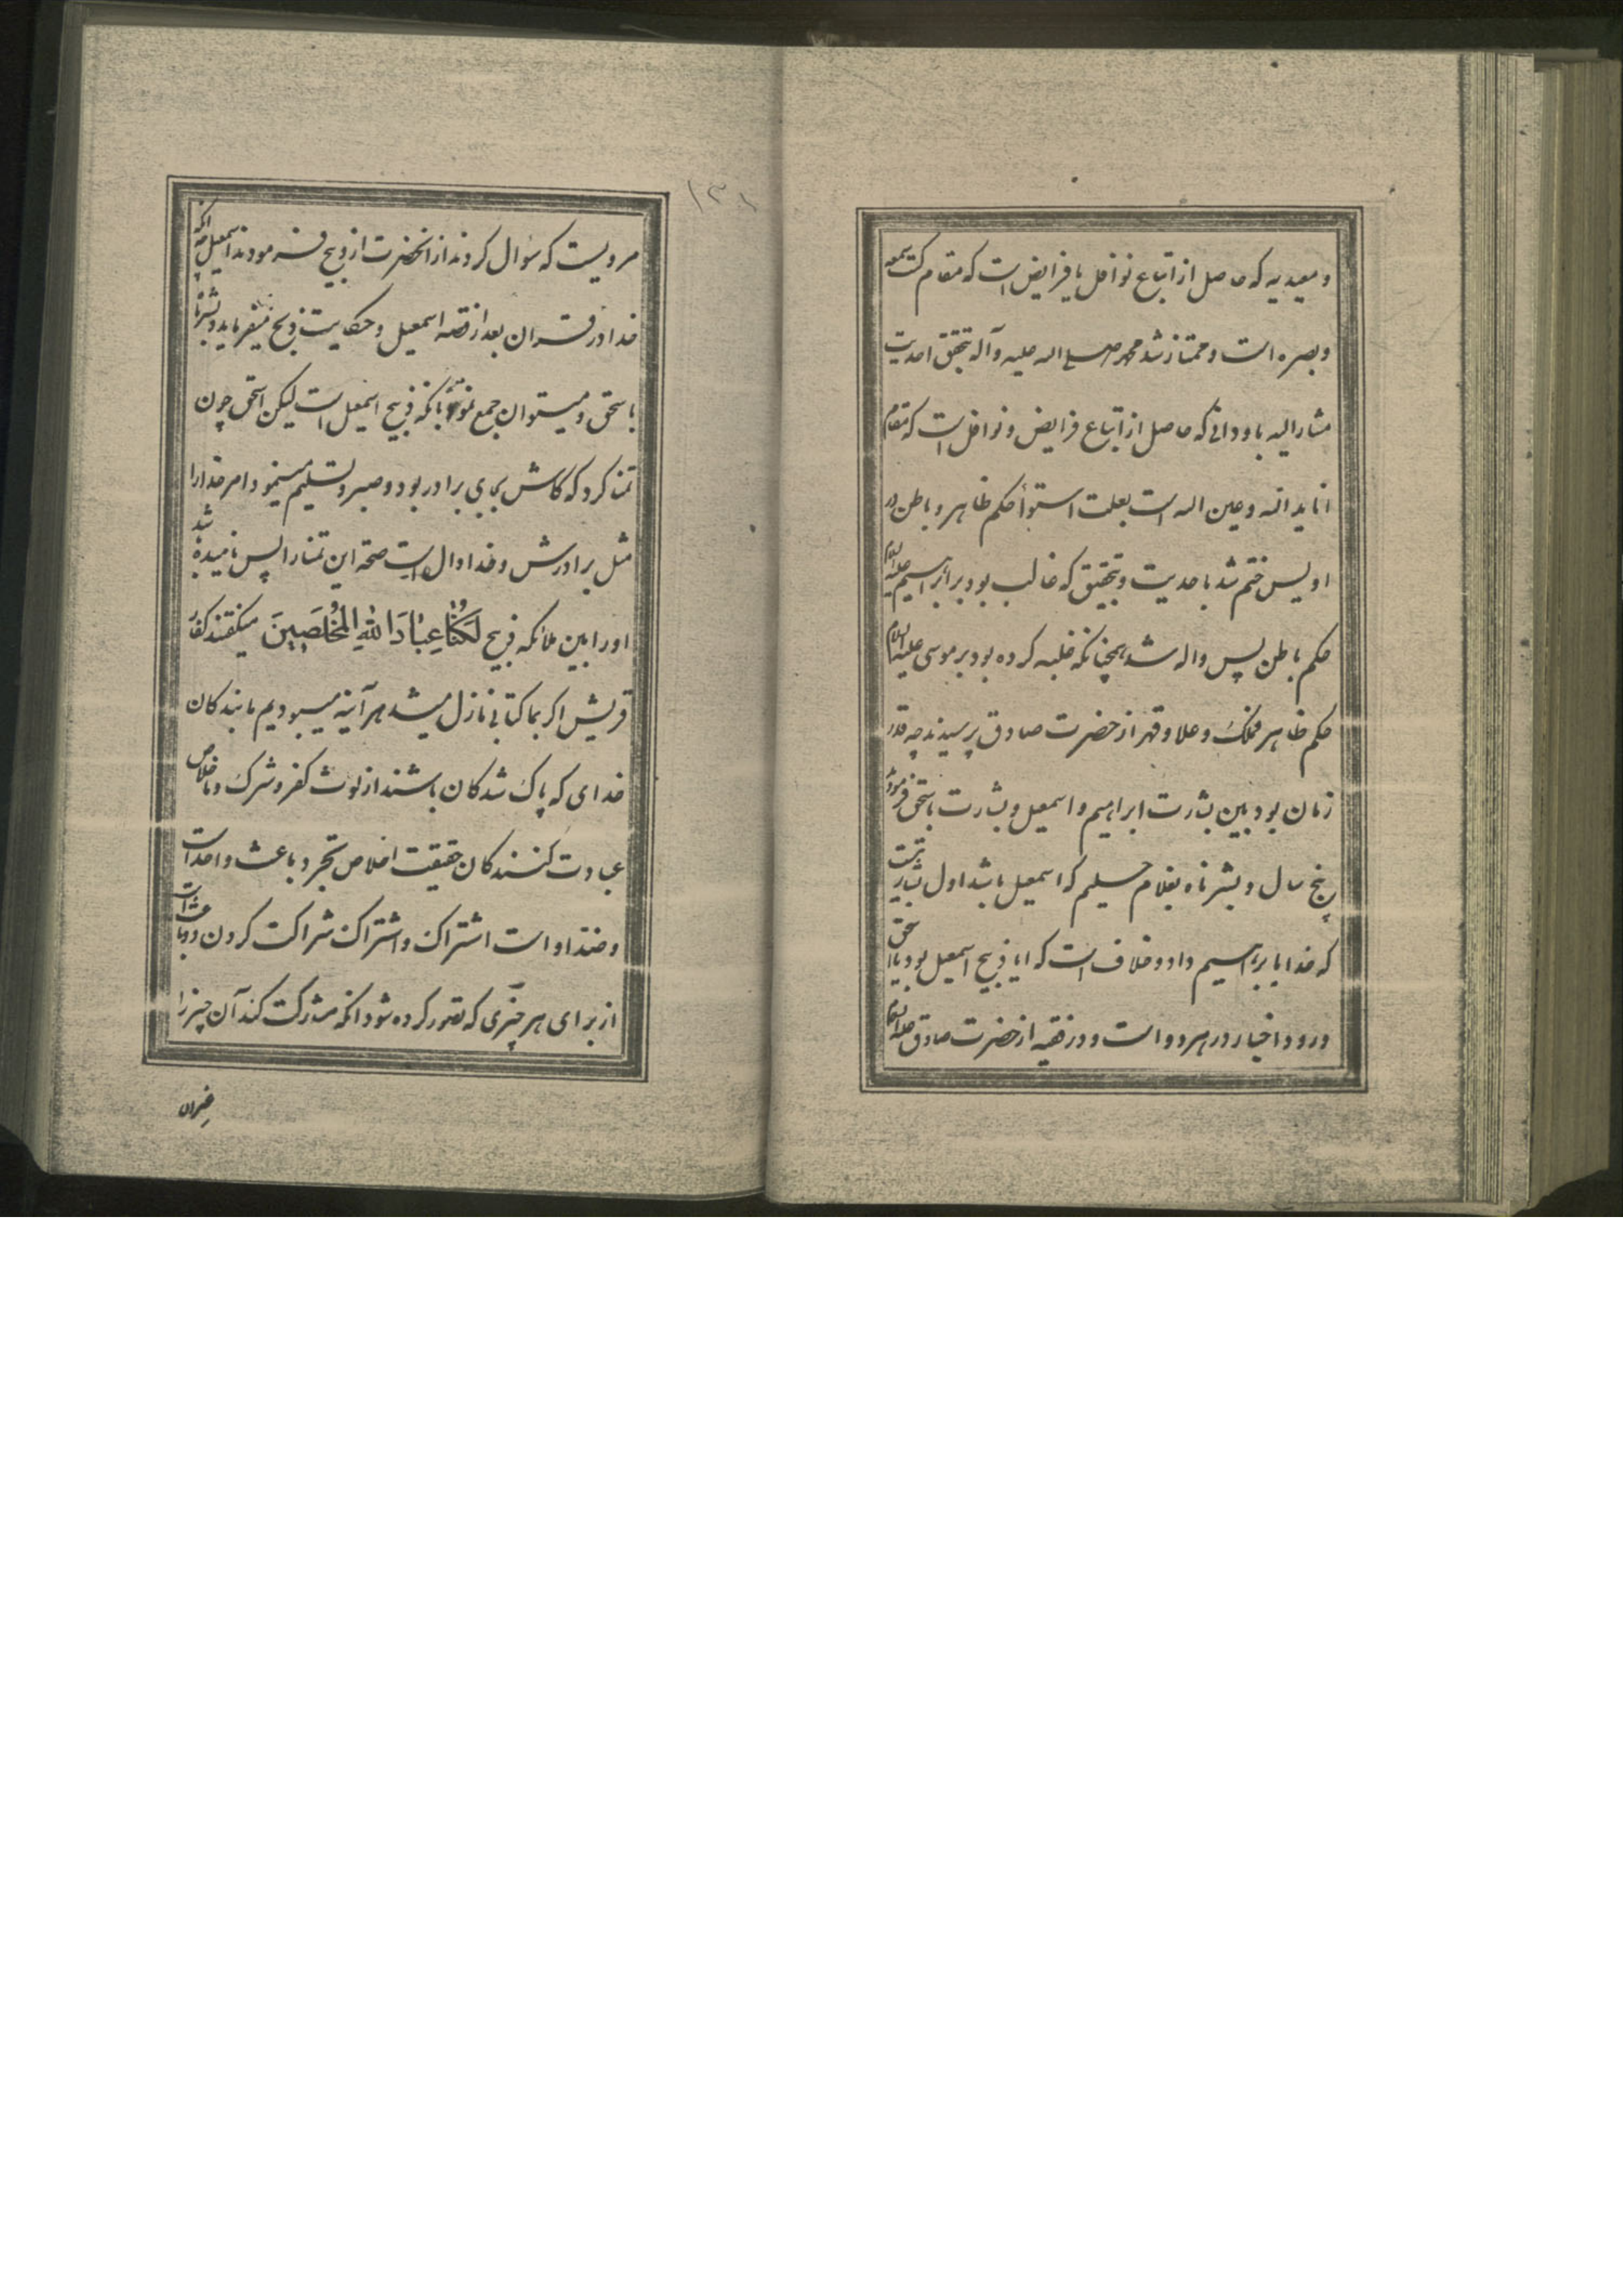 و معیدیه که حاصل از اتباع نوافل یا فرایض است که مقام کنت سمعه
و بصره است و ممتاز شد محمد صلی الله علیه و آله بتحقق احدیت
مشار الیه باو دانی که حاصل از اتباع فرایض و نوافل است که مقام
انا ید الله و عین الله است بعلت استوأ حکم ظاهر و باطن در
او پس ختم شد باحدیت و بتحقیق که غالب بود بر ابراهیم علیه السلام
حکم باطن پس واله شد همچنانکه غلبه کرده بود بر موسی علیه السلام
حکم ظاهر فملک و علا و قهر از حضرت صادق پرسیدند چه قدر
زمان بود بین بشارت ابراهیم و اسمعیل و بشارت باسحق فرمود
پنج سال و بشرناه بغلام حلیم که اسمعیل باشد اول بشارتیست
که خدا بابراهیم داد و خلاف است که ایا ذبیح اسمعیل بود یا اسحق
ورود اخبار در هر دو است و در فقیه از حضرت صادق علیه السلام
۱۳۸
مرویست که سؤال کردند از انحضرت از ذبیح فرمودند اسمعیل چه انکه
خدا در قران بعد از قصه اسمعیل و حکایت ذبح میفرماید و بشرناه
باسحق و میتوان جمع نمود بانکه ذبیح اسمعیل است لیکن اسحق چون
تمنا کرد که کاش بجای برادر بود و صبر و تسلیم مینمود امر خدا را
مثل برادرش و خدا دانست صحة این تمنا را پس نامیده شد
اورا بین ملائکه ذبیح لَكُنَّا عِبَادَ اللهِ الْمُخْلَصِينَ میکفتند کفار
قریش اکر بما کتابی نازل میشد هر آینه میبودیم ما بندکان
خدای که پاک شدکان باشند از لوث کفر و شرک و با خلاص
عبادت کنندکان حقیقت اخلاص تجرد باعث واحد است
و ضد او است اشتراک و اشتراک شراکت کردن دو باعث است
از برای هر چیزی که تصور کرده شود انکه مشارکت کند آن چیز را
غیران